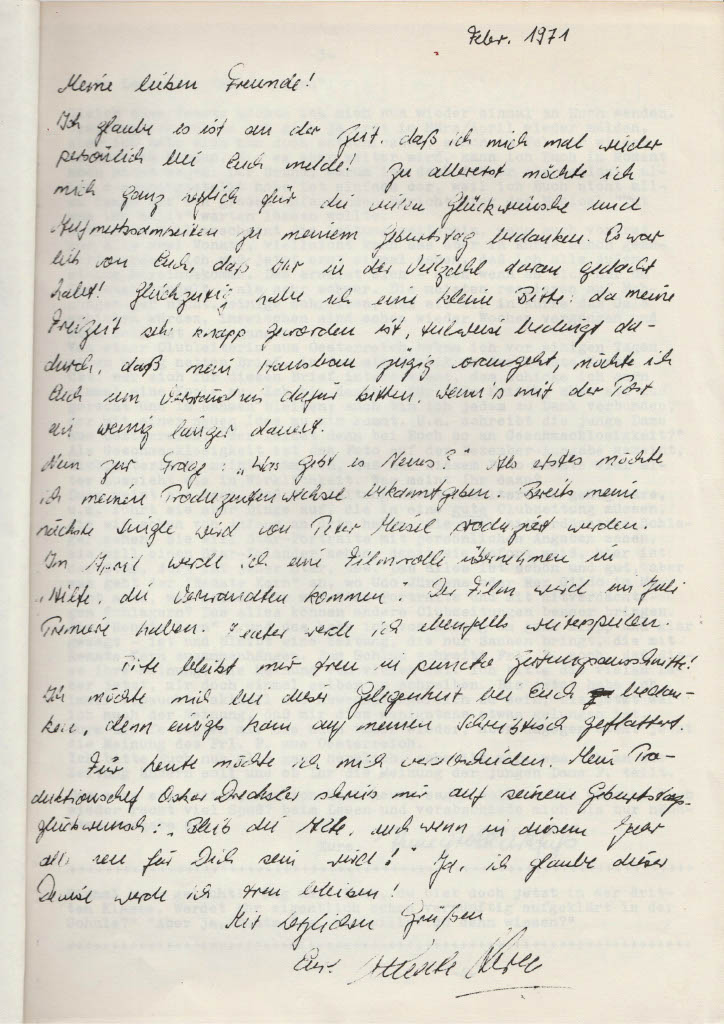 Febr. 1971
Meine lieben Freunde!
Ich glaube es ist an der Zeit, daß ich mich mal wieder
persönlich bei Euch melde! Zu allererst möchte ich
mich ganz herzlich für die vielen Glückwünsche und
Aufmerksamkeiten zu meinem Geburtstag bedanken. Es war
lieb von Euch, daß Ihr in der Vielzahl daran gedacht
habt! Gleichzeitig habe ich eine kleine Bitte: da meine
Freizeit sehr knapp geworden ist, teilweise bedingt da-
durch, daß mein Hausbau zügig vorangeht, möchte ich
Euch um Verständnis dafür bitten, wenn's mit der Post
ein wenig länger dauert.
Nun zur Frage: „Was gibt es Neues?" Als erstes möchte
ich meinen Produzentenwechsel bekanntgeben. Bereits meine
nächste Single wird von Peter Meisel produziert werden.
Im April werde ich eine Filmrolle übernehmen in
„Hilfe, die Verwandten kommen". Der Film wird im Juli
Premiere haben. Theater werde ich ebenfalls weiterspielen.
Bitte bleibt mir treu in puncto Zeitungsausschnitte!
Ich möchte mich bei dieser Gelegenheit bei Euch bedan-
ken, denn einiges kam auf meinen Schreibtisch geflattert.
Für heute möchte ich mich verabschieden. Mein Pro-
duktionschef Oskar Drechsler schrieb mir auf seinem Geburtstags-
glückwunsch: „Bleib die Alte, auch wenn in diesem Jahr
alles neu für Dich sein wird!" Ja, ich glaube dieser
Devise werde ich treu bleiben!
Mit herzlichen Grüßen
Eure